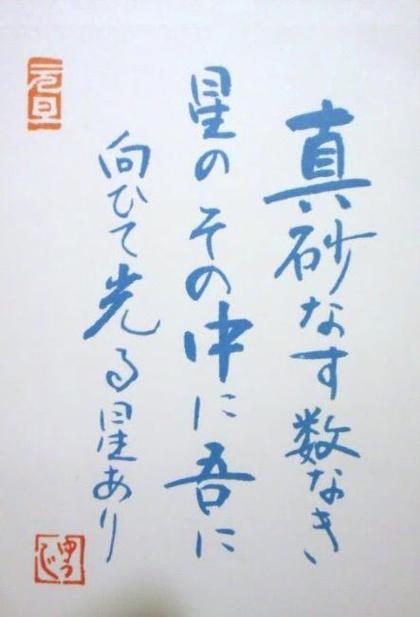 真砂なす数なき
星のその中に吾に
向ひて光る星あり
元旦
ゆうじ